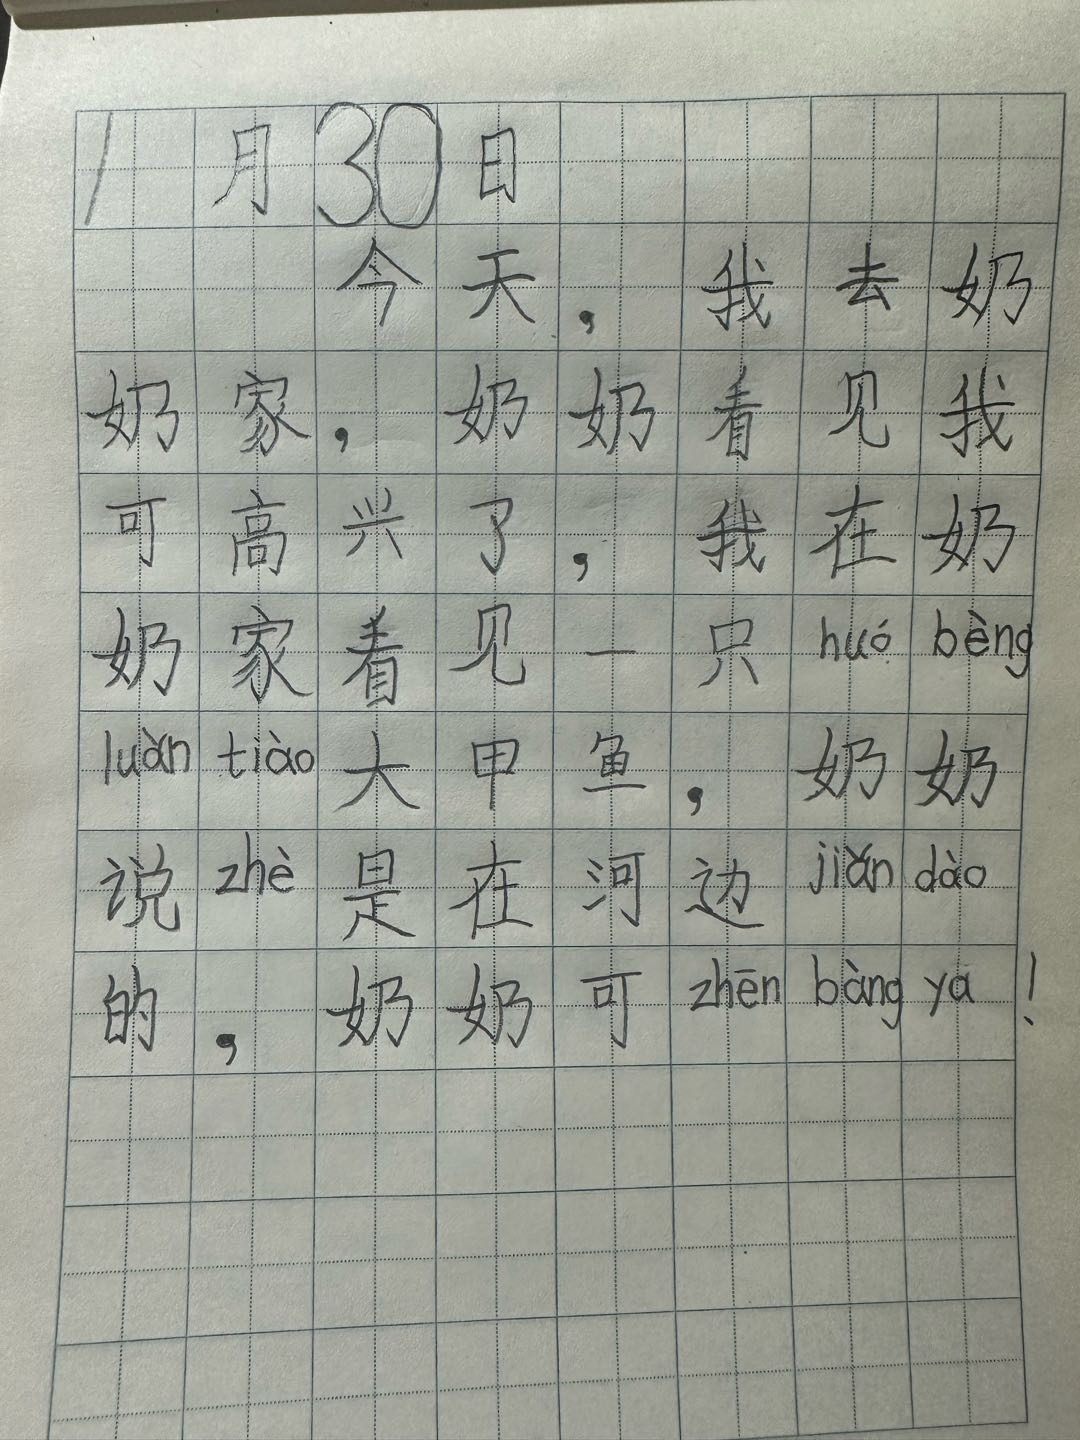 1月30日
今天，我去奶
奶家，奶奶看见我
可高兴了，我在奶
奶家看见一只huó bèng
luàn tiào大甲鱼，奶奶
说zhè是在河边jiǎn dào
的，奶奶可zhēn bàng ya！